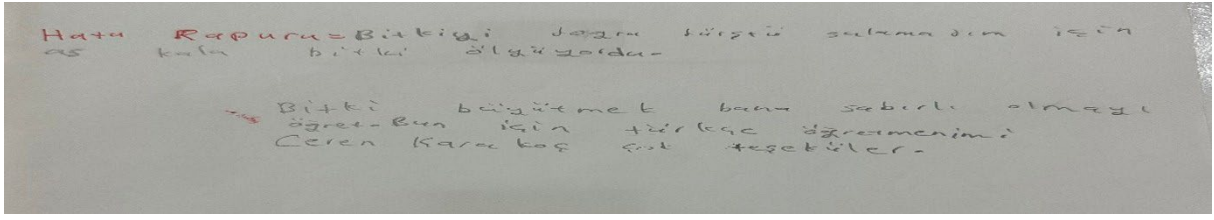 Hata Rapuru = Bitkiyi dogru dürstü sulamadım için
as kala bitki ölyüyordu.
Bitki büyütmek bana sabırlı olmayı
öğret. Bun için türkçe öğretmenimi
Ceren Karakoç çok teşeküler.